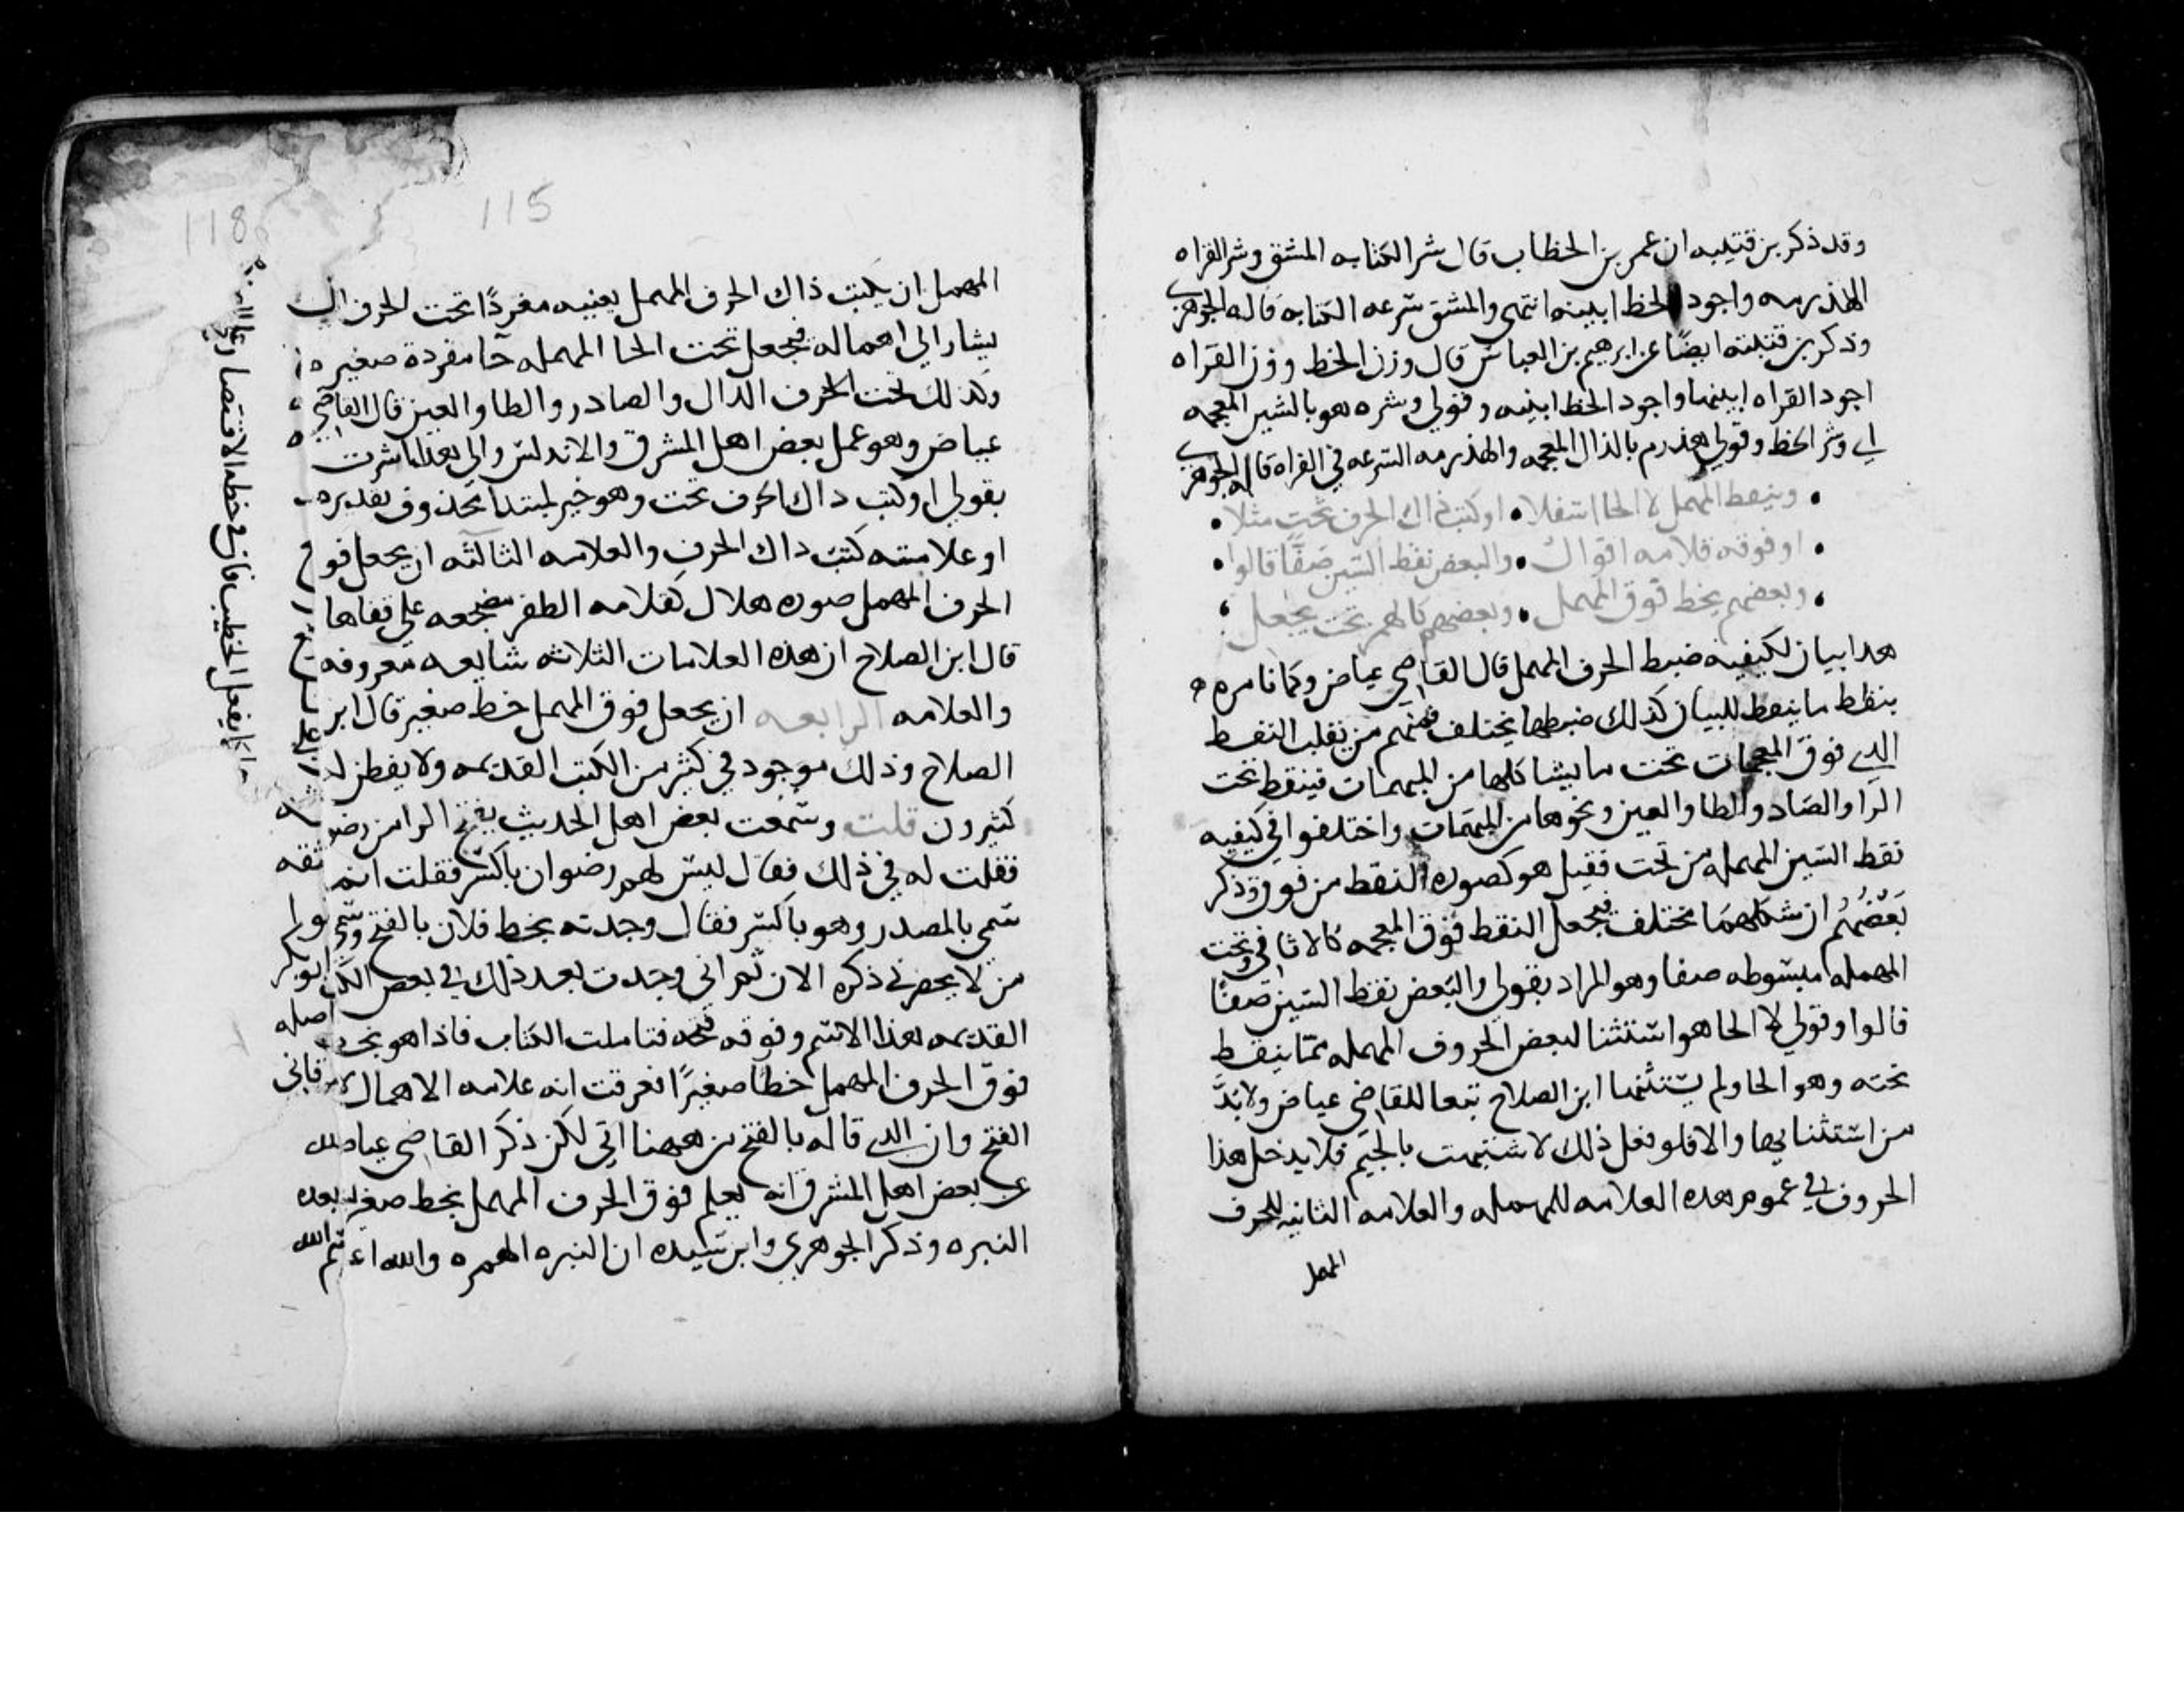 وقد ذكر بن قتيبه ان عمر بن الخطاب قال شر الكتابه المشق وشر القراه
الهذرمه واجود الخط ابينه انتهى والمشق سرعه الكتابه قاله الجوهري
وذكر بن قتيبه ايضًا عن ابرهيم بن العباس قال وزن الخط وزن القراه
اجود القراه ابينها واجود الخط ابينه وقولي وشره هو بالشين المعجمه
اي وشر الخط وقولي هذرم بالذال المعجمه والهذرمه السرعه في القراه قاله الجوهري
• وينقط المهمل لا الحا اسفلا • او كتب ذاك الحرف تحت مثلا •
• او فوقه قلامه اقوال • والبعض نقط السين صفًا قالوا •
• وبعضهم يخط فوق المهمل • وبعضهم كالهمز تحت يجعل
هدا بيان لكيفيه ضبط الحرف المهمل قال القاضي عياض وكما نامره
بنقط ما ينقط للبيان كذلك ضبطها يختلف فمنهم من يقلب النقط
الذي فوق المعجمات تحت ما يشاكلها من المهملات فينقط تحت
الرا والصاد والطا والعين ونحوها من المهملات واختلفوا في كيفيه
نقط السين المهمله من تحت فقيل هو كصوره النقط من فوق وذكر
بعضهم ان شكلهما مختلف فيجعل النقط فوق المعجمه كالاثافي وتحت
المهمله مبسوطه صفا وهو المراد بقولي والبعض نقط السين صفًا
قالوا وقولي لا الحا هو استثنا لبعض الحروف المهمله مما ينقط
تحته وهو الحا ولم يستثنها ابن الصلاح تبعا للقاضي عياض ولا بدَّ
من استثنايها والا فلو فعل ذلك لاشتبهت بالجيم فلا يدخل هذا
الحروف في عموم هده العلامه للمهمله والعلامه الثانيه للحرف
المهمل
115
118
المهمل ان يكتب ذاك الحرف المهمل بعينيه مفردًا تحت الحرف الـ
يشار الى اهماله فيجعل تحت الحا المهمله حا مفردة صغيره
وكذلك تحت الحرف الدال والصاد والطا والعين قال القاضي
عياض وهو عمل بعض اهل المشرق والاندلس والى هدا اشرت
بقولي او كتب ذاك الحرف تحت وهو خبر لمبتدا محذوف تقديره
او علامته كتب داك الحرف والعلامه الثالثه ان يجعل فو
الحرف المهمل صوره هلال كقلامه الظفر مضجعه على قفاها
قال ابن الصلاح ان هذه العلامات الثلاثه شايعه معروفه
والعلامه الرابعه ان يجعل فوق المهمل خط صغير قال ابن
الصلاح وذلك موجود في كثير من الكتب القديمه ولا يفطن لـ
كثيرون قلت وسمعت بعض اهل الحديث يفتح الرا من رضو
فقلت له في ذلك فقال ليس لهم رضوان بالكسر فقلت انما
سمي بالمصدر وهو بالكسر فقال وجدته بخط فلان بالفتح وسمى
من لا يحضرني ذكره الان ثم اني وجدت بعد ذلك في بعض الكتب
القديمه هذا الاسم وفوقه فتحه فتاملت الكتاب فاذا هو يخط
فوق الحرف المهمل خطا صغيرًا فعرفت انه علامه الاهمال لا
الفتح وان الذي قاله بالفتح من ههنا اتي لكن ذكر القاضي عياض
عن بعض اهل المشرق انه يعلم فوق الحرف المهمل بخط صغير
النبره وذكر الجوهري وابن سيده ان النبره الهمزه والله اعلم
يفعل الخطيب فان في خطه الاقتصار